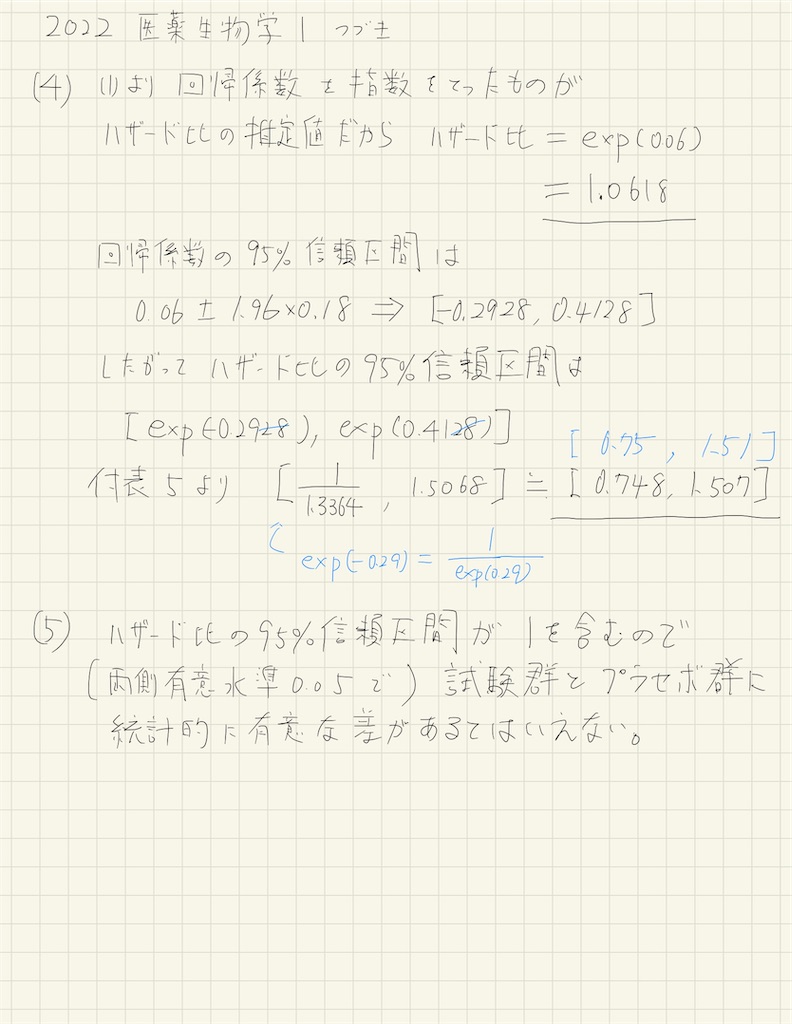 2022 医薬生物学1 つづき
(4) (1)より 回帰係数を指数をとったものが
ハザード比の推定値だから ハザード比 = exp(0.06)
= 1.0618
回帰係数の95%信頼区間は
0.06 ± 1.96×0.18 ⇒ [-0.2928, 0.4128]
したがって ハザード比の95%信頼区間は
[exp(-0.2928), exp(0.4128)]
[0.75, 1.51]
付表5より [1/1.3364, 1.5068] ≒ [0.748, 1.507]
exp(-0.29) = 1/exp(0.29)
(5) ハザード比の95%信頼区間が1を含むので
(両側有意水準0.05で) 試験群とプラセボ群に
統計的に有意な差があるとはいえない。